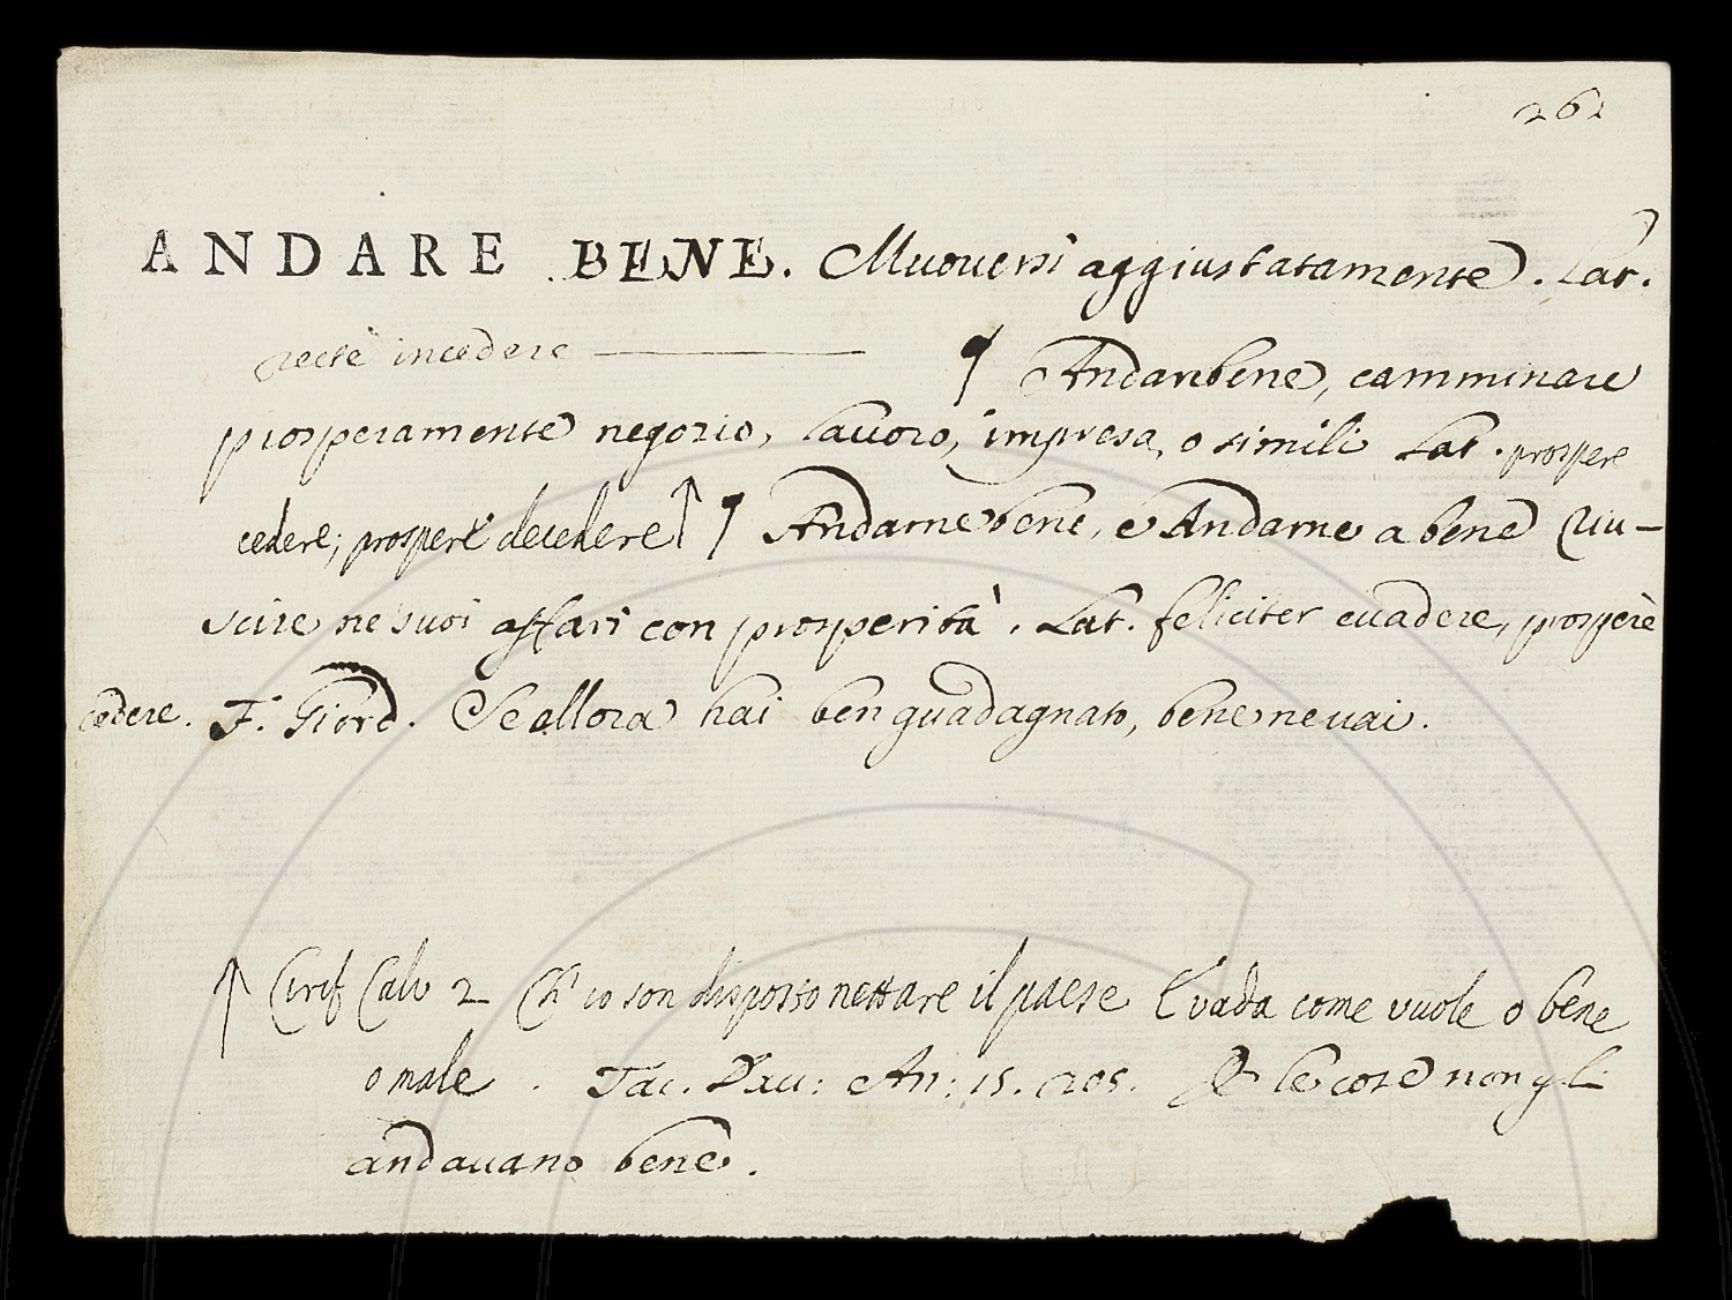 262
ANDARE BENE. Muouersi aggiustatamente. Lat.
rectè incedere ——— ¶ Andar bene, camminare
prosperamente negozio, lauoro, impresa, o simili Lat. prospere
cedere; prosperè decedere ↑ ¶ Andarne bene, e Andarne a bene Riu-
scire ne' suoi affari con prosperità. Lat. feliciter euadere, prosperè
cedere. F. Giord. Se allora hai ben guadagnato, bene ne uai.
↑ Cirif Calv 2 Ch' io son disposto nettare il paese E vada come vuole o bene
o male. Tac. Dau: An: 15. 205. & le cose non gli
andauano bene.